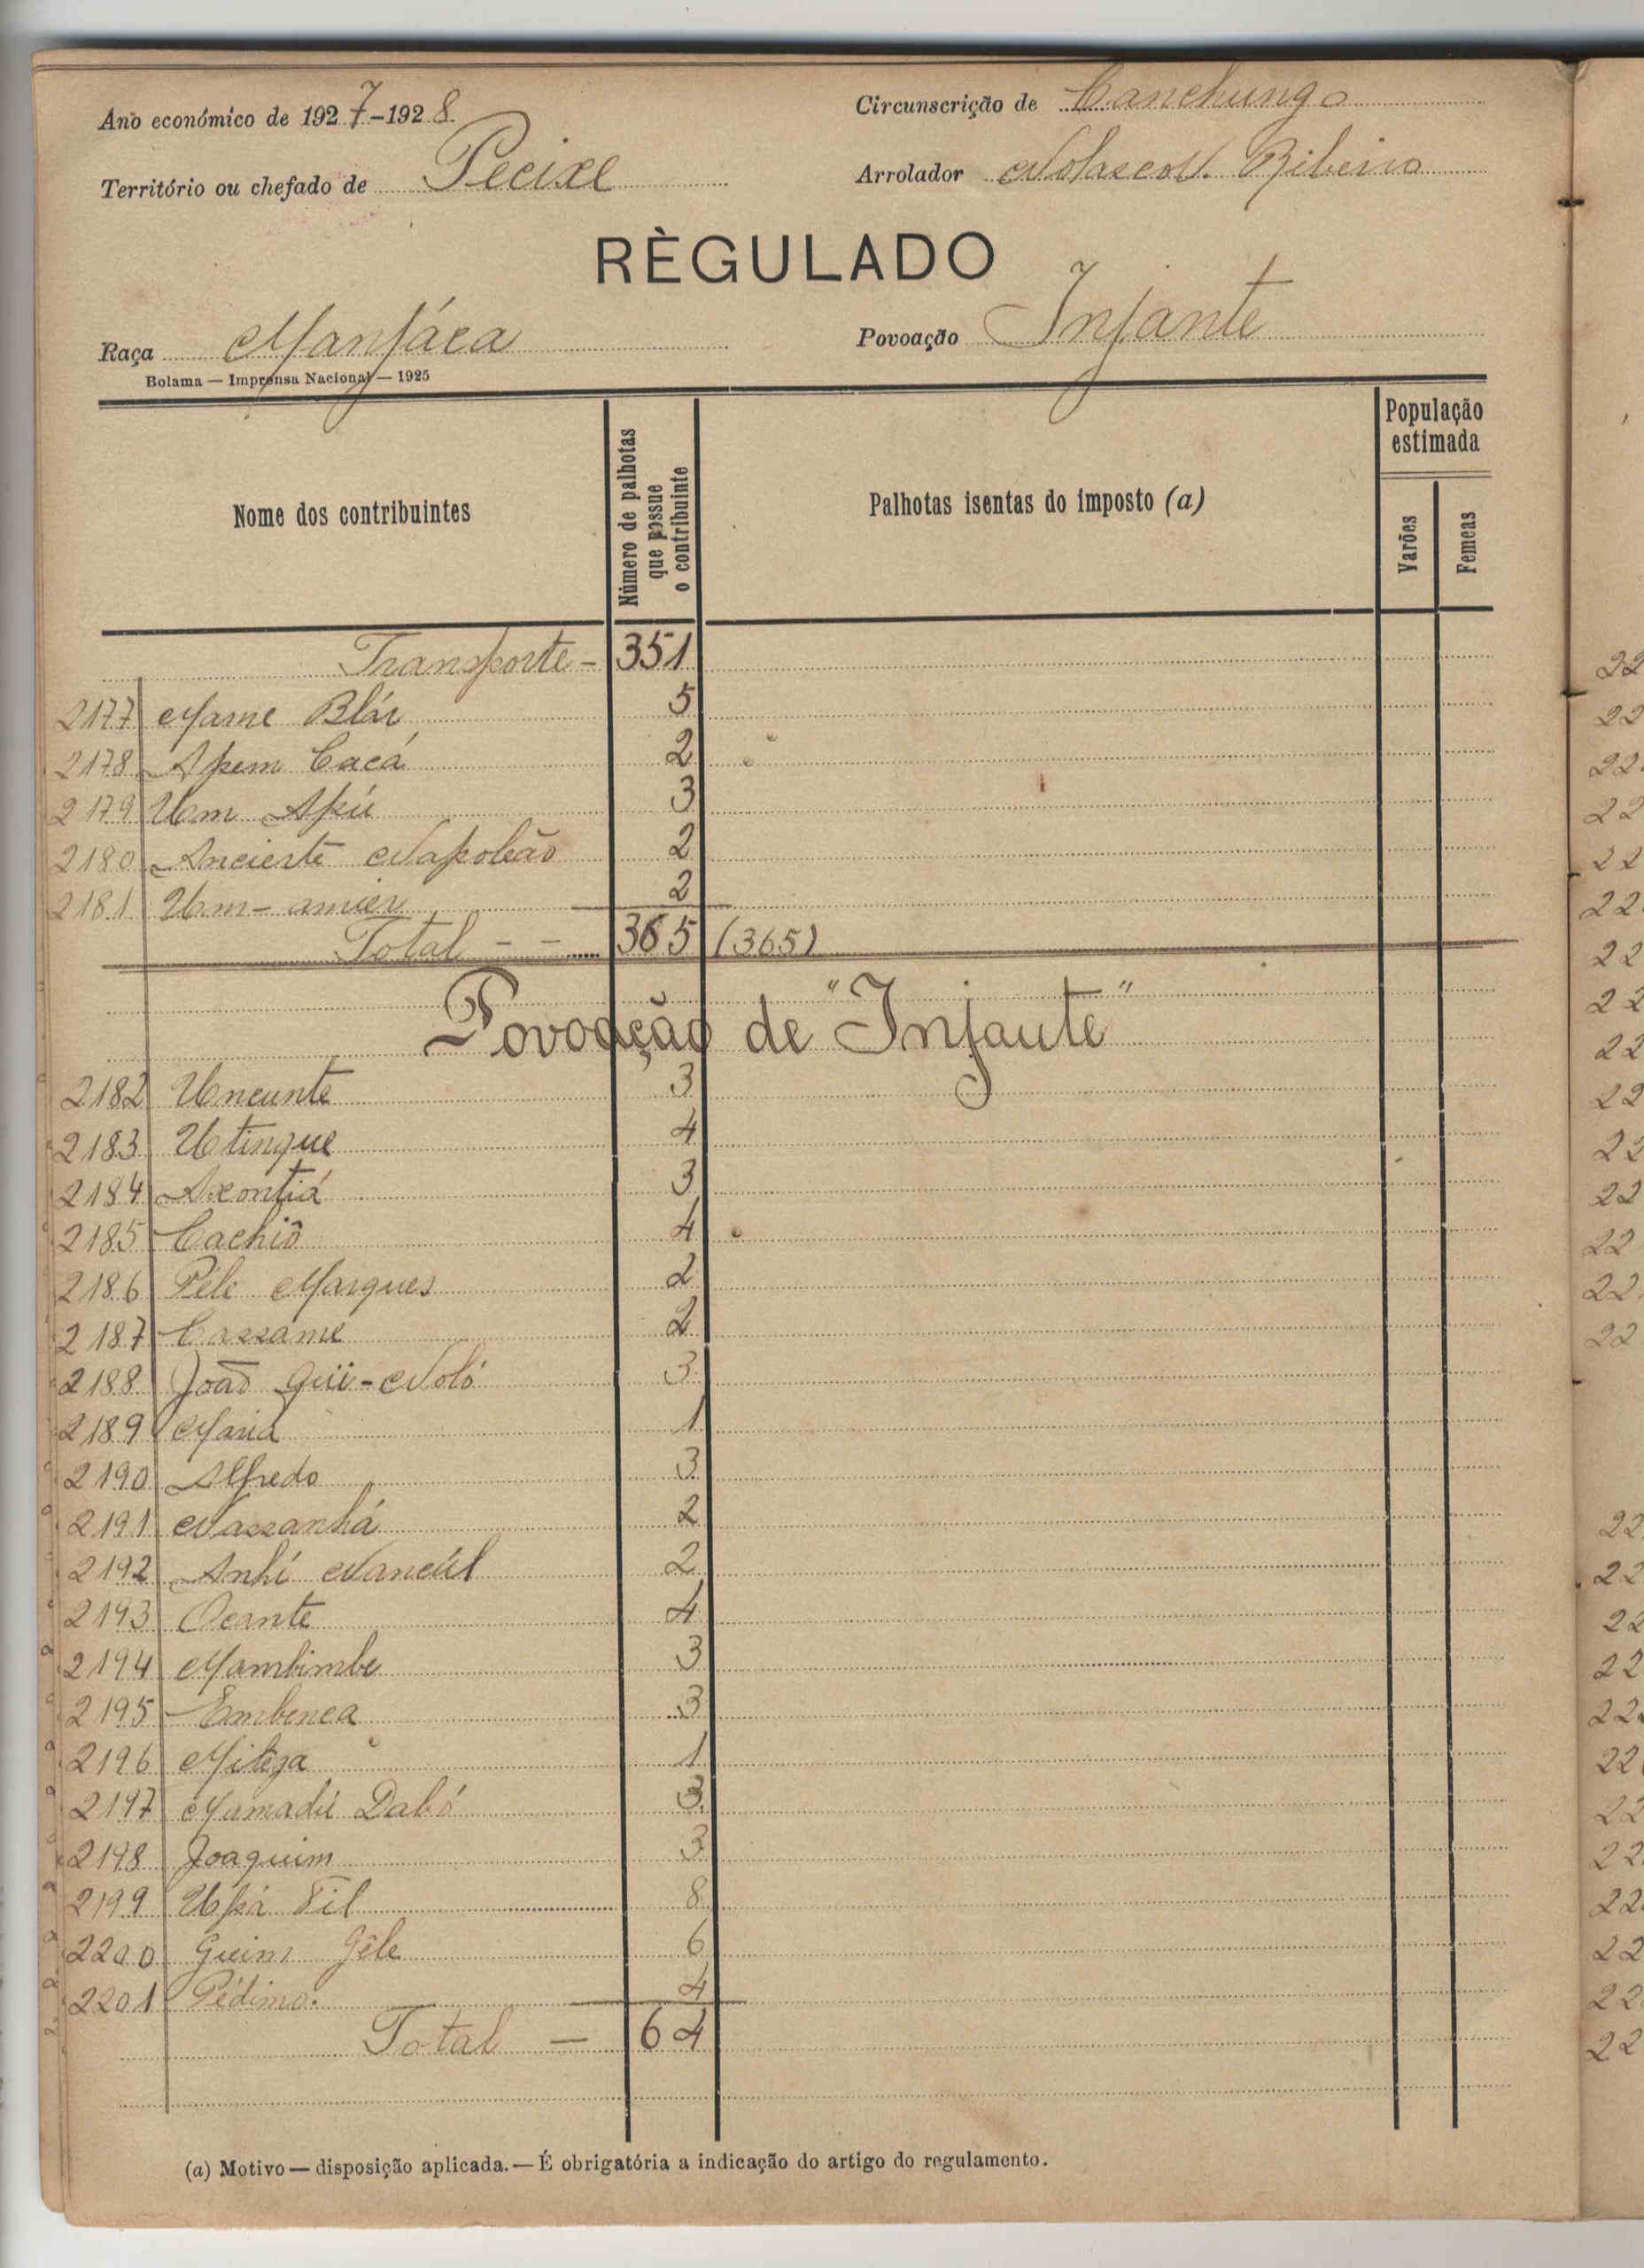 Ano económico de 1927-1928
Circunscrição de Canchungo
Território ou chefado de Pecixe
Arrolador Nolasco V. Ribeiro
RÈGULADO
Raça Manjáca
Povoação Injante
Bolama — Imprensa Nacional — 1925
Nome dos contribuintes
Número de palhotas que possue o contribuinte
Palhotas isentas do imposto (a)
População estimada
Varões
Femeas
Transporte - 351
2177 Mame Blár 5
2178 Apem Cacá 2
2179 Um Apú 3
2180 Napoleão 2
2181 Um-amier 2
Total - - 365 (365)
Povoação de "Injante"
2182 Uncunte 3
2183 Utinque 4
2184 Axontiá 3
2185 Cachiô 4
2186 Péle Marques 2
2187 Cassame 2
2188 João Qüi-Noló 3
2189 Maria 1
2190 Alfredo 3
2191 Nassanhá 2
2192 Anhí Nancúl 2
2193 Ocante 4
2194 Mambimbe 3
2195 Embenca 3
2196 1
2197 Mamadú Dabó 3
2198 Joaquim 3
2199 Upá 8
2200 Gêle 6
2201 Pédimo. 4
Total — 64
(a) Motivo — disposição aplicada. — É obrigatória a indicação do artigo do regulamento.